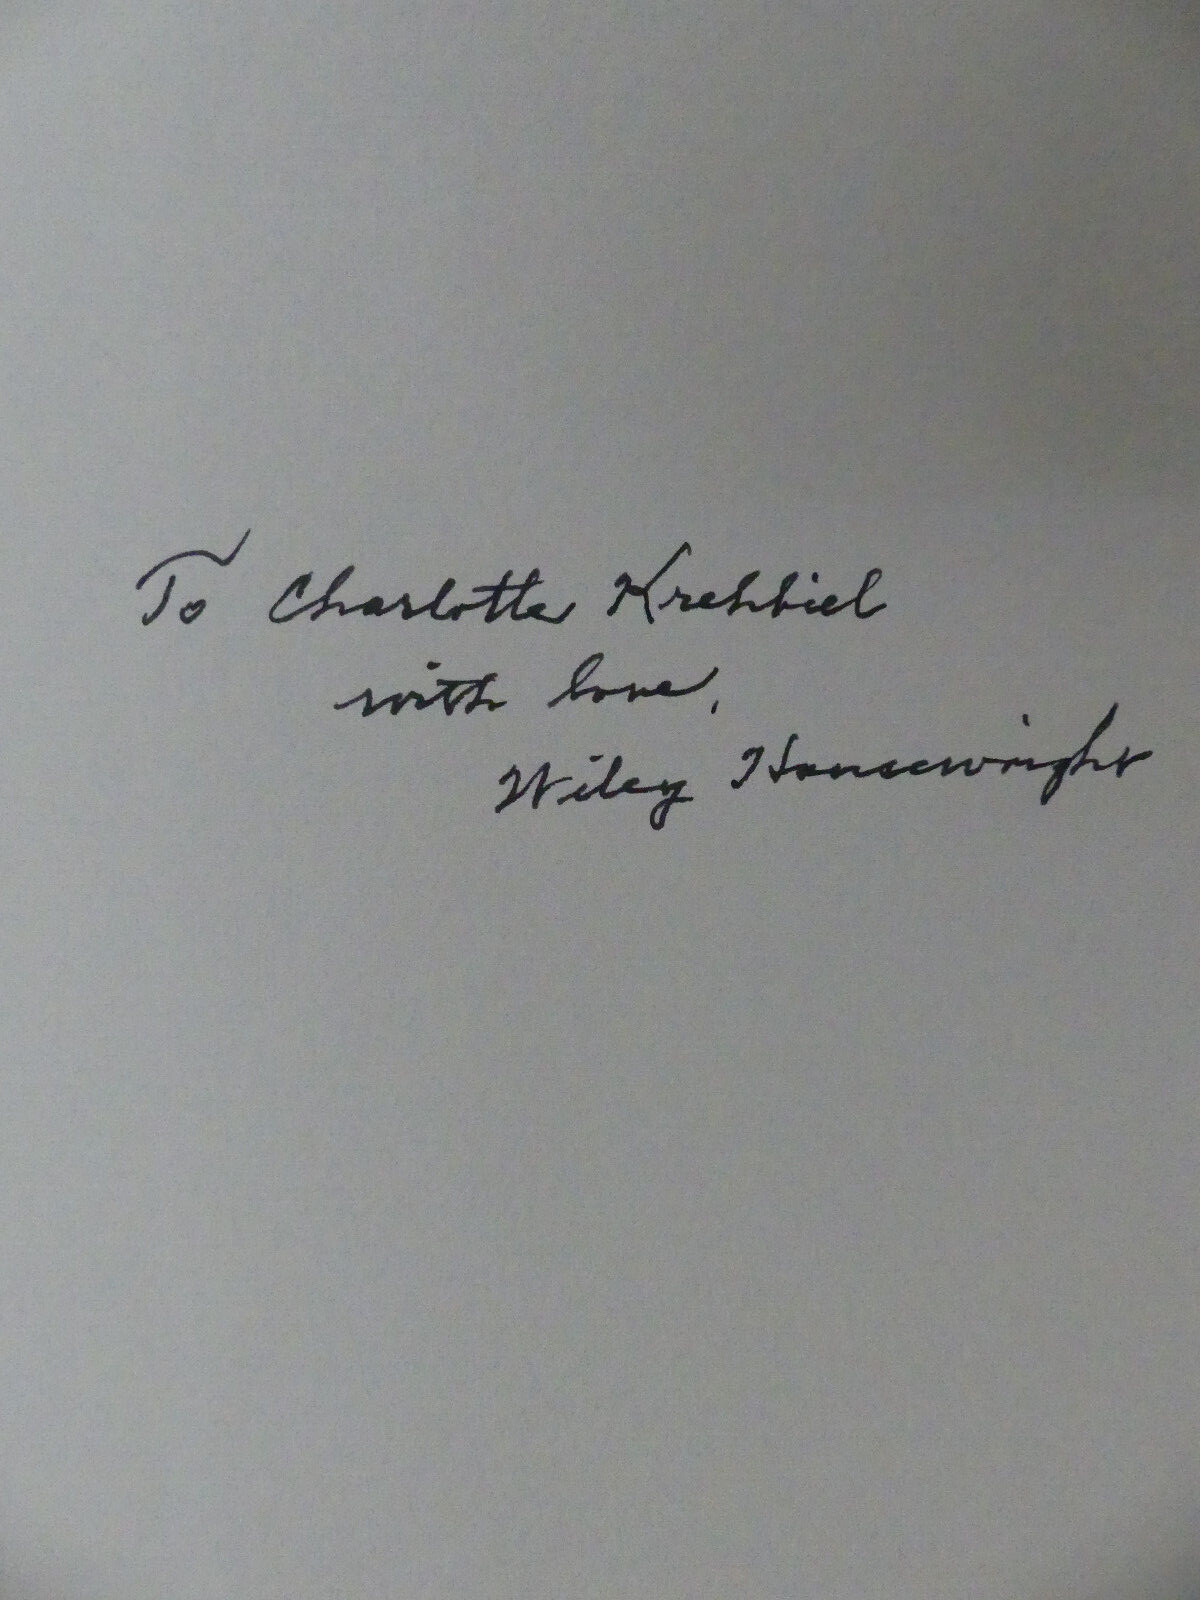 To Charlotte Krehbiel
with love,
Wiley Housewright